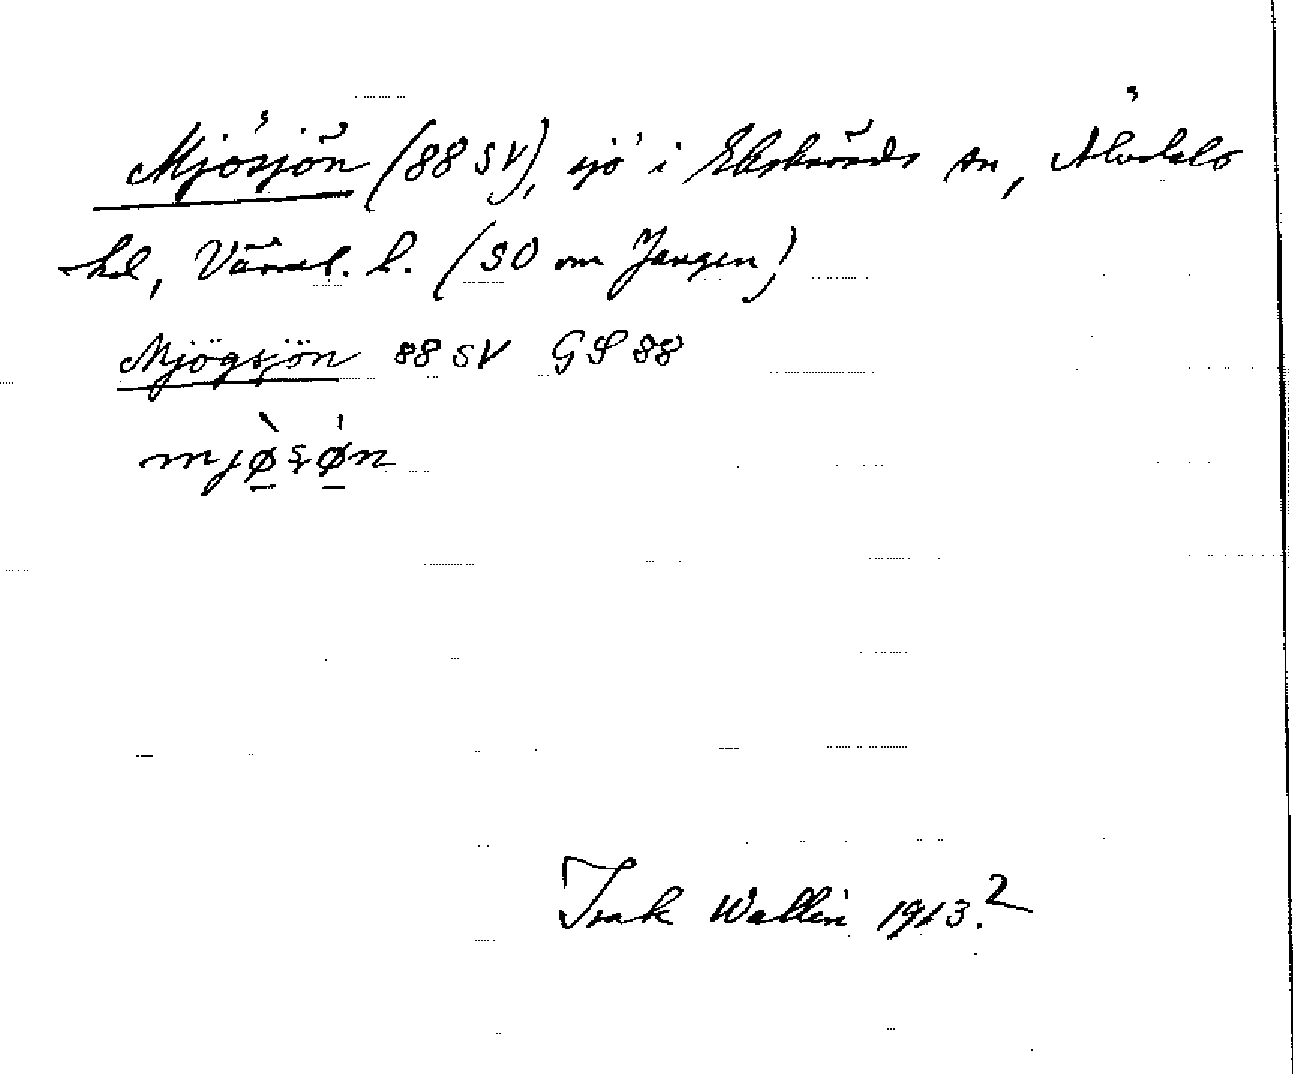 Mjösjön (88 SV), sjö i Ekshärads sn, Älvdals
hd, Värml. l. (SO om Jangen)
Mjögsjön 88 SV GS 88
Isak Wallin 1913.2